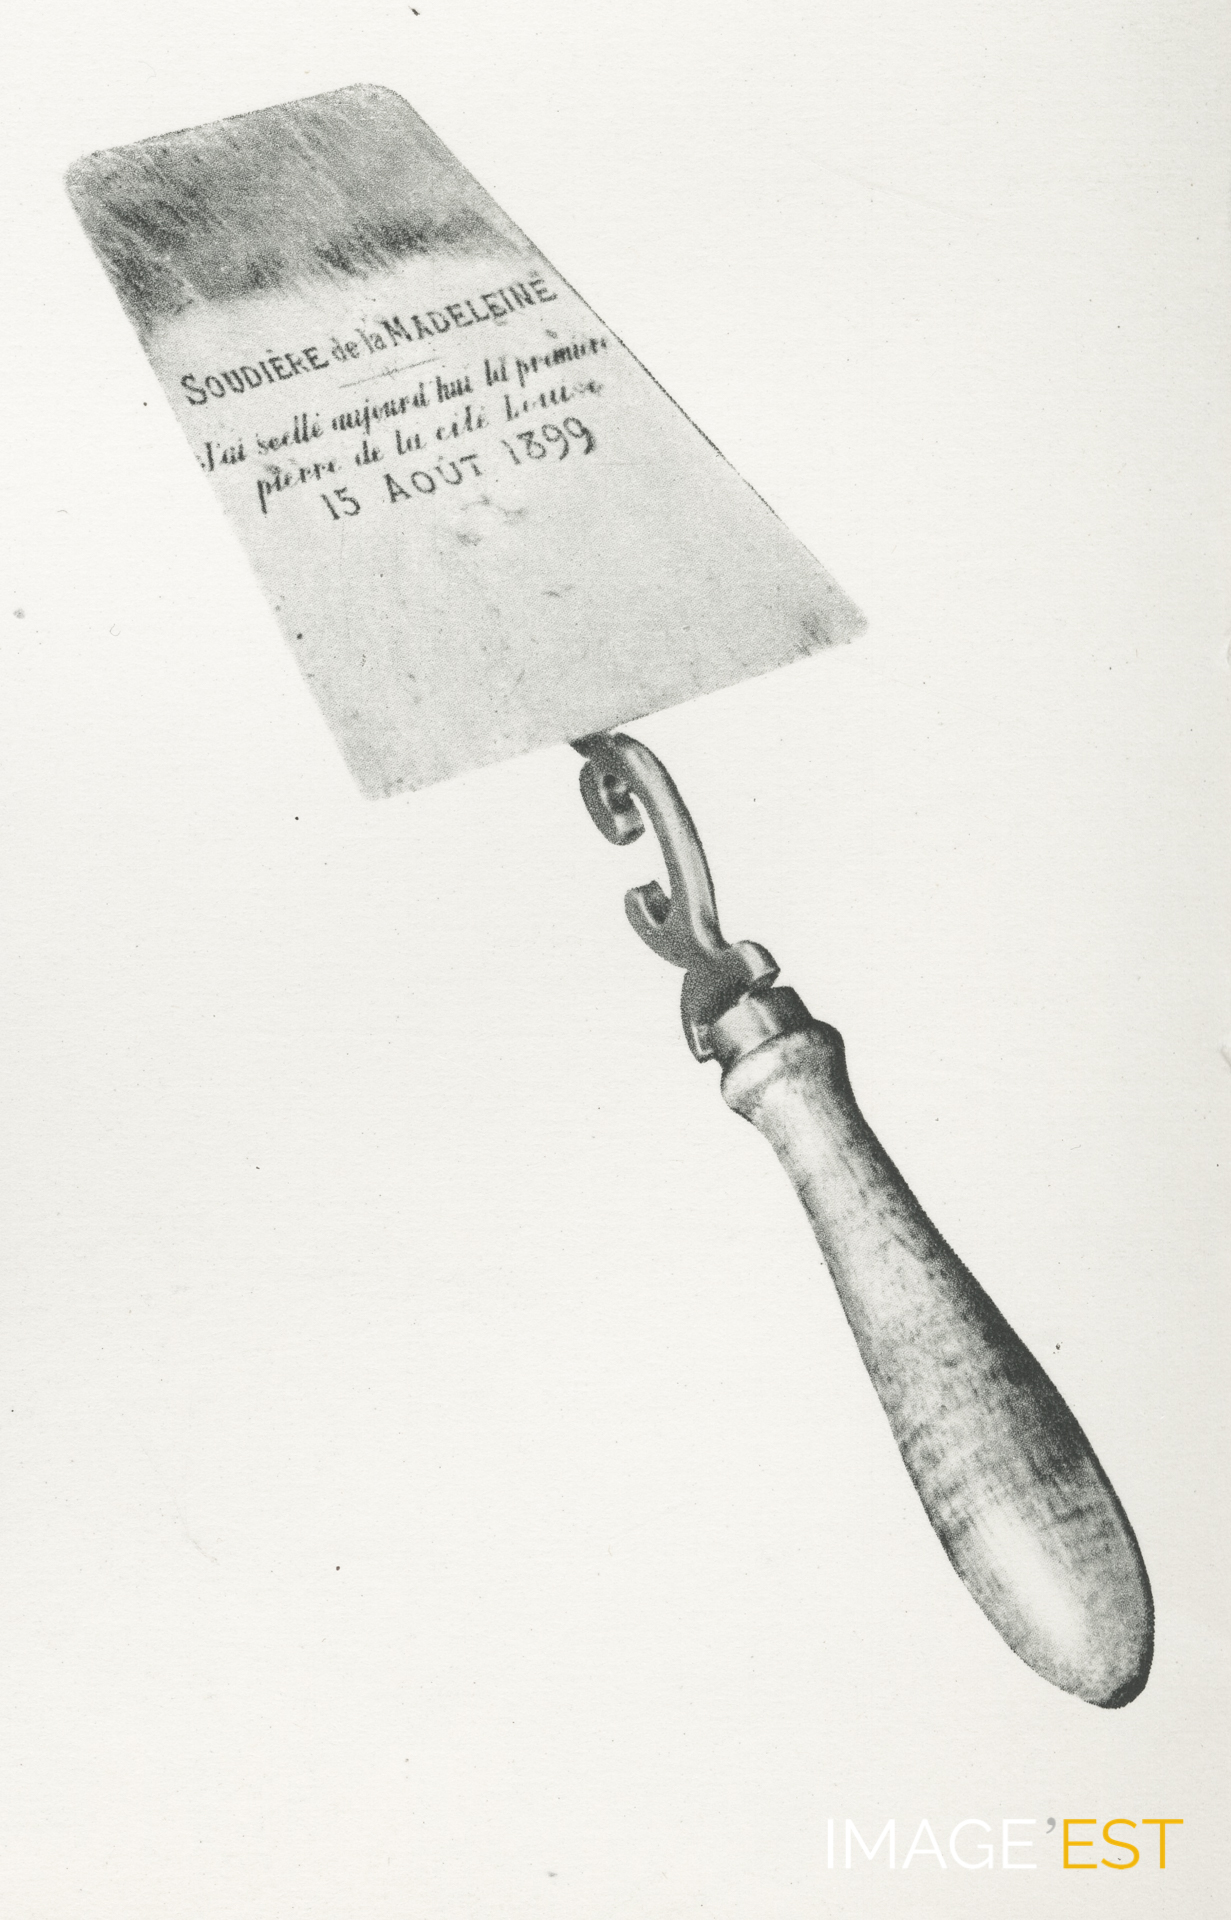 SOUDIÈRE de la MADELEINE
J'ai scellé aujourd'hui la première
pierre de la cité Louise
15 AOÛT 1899
IMAGE'EST